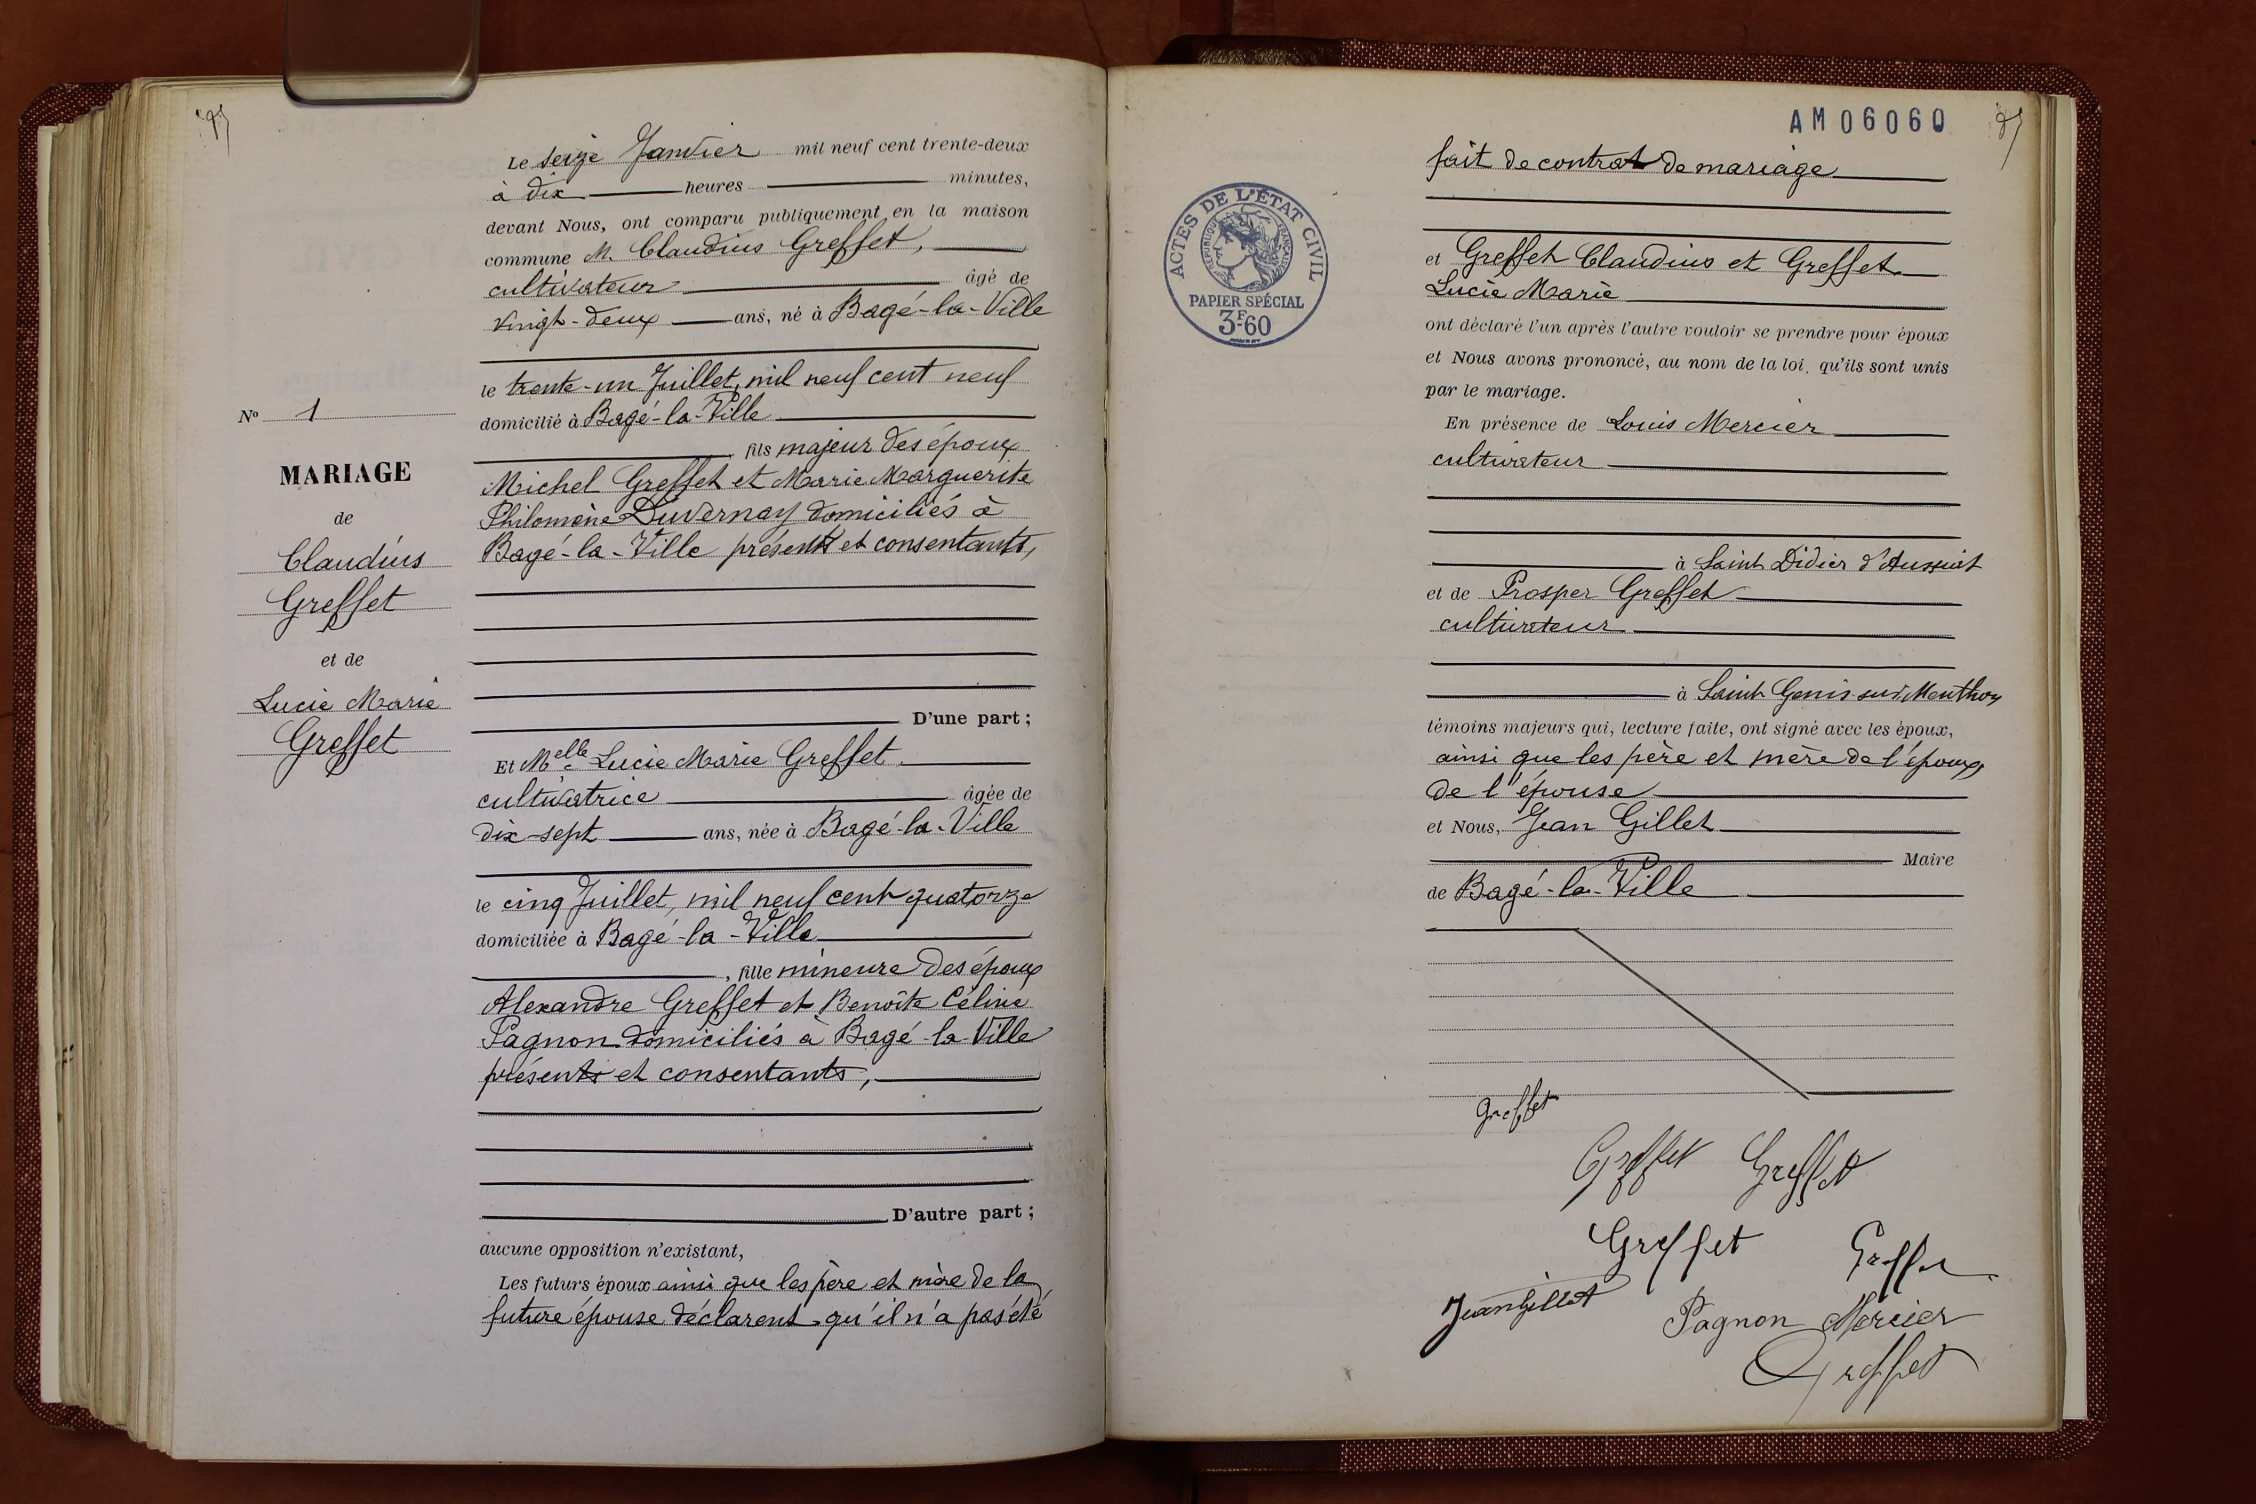 Le seize Janvier mil neuf cent trente-deux
à dix heures minutes,
devant Nous, ont comparu publiquement en la maison
commune M. Claudius Greffet,
cultivateur âgé de
vingt-deux ans, né à Bagé-la-Ville
le trente-un Juillet, mil neuf cent neuf
domicilié à Bagé-la-Ville
, fils majeur des époux
Michel Greffet et Marie Marguerite
Philomène Duvernay domiciliés à
Bagé-la-Ville présents et consentants,
D'une part ;
N° 1
MARIAGE
de
Claudius
Greffet
et de
Lucie Marie
Greffet
Et Melle Lucie Marie Greffet
cultivatrice âgée de
dix-sept ans, née à Bagé-la-Ville
le cinq Juillet, mil neuf cent quatorze
domiciliée à Bagé-la-Ville
, fille mineure des époux
Alexandre Greffet et Benoîte Céline
Pagnon domiciliés à Bagé-la-Ville
présents et consentants,
D'autre part ;
aucune opposition n'existant,
Les futurs époux ainsi que les père et mère de la
future épouse déclarent qu'il n'a pas été
AM06060
fait de contrat de mariage
ACTES DE L'ÉTAT CIVIL
RÉPUBLIQUE FRANÇAISE
PAPIER SPÉCIAL
3F60
et Greffet Claudius et Greffet
Lucie Marie
ont déclaré l'un après l'autre vouloir se prendre pour époux
et Nous avons prononcé, au nom de la loi, qu'ils sont unis
par le mariage.
En présence de Louis Mercier
cultivateur
à Saint Didier d'Aussiat
et de Prosper Greffet
cultivateur
à Saint Genis sur Menthon
témoins majeurs qui, lecture faite, ont signé avec les époux,
ainsi que les père et mère de l'époux,
de l'épouse
et Nous, Jean Gillet
Maire
de Bagé-la-Ville
Greffet
Greffet Greffet
Greffet Greffet
Jean Gillet
Pagnon Mercier
Greffet